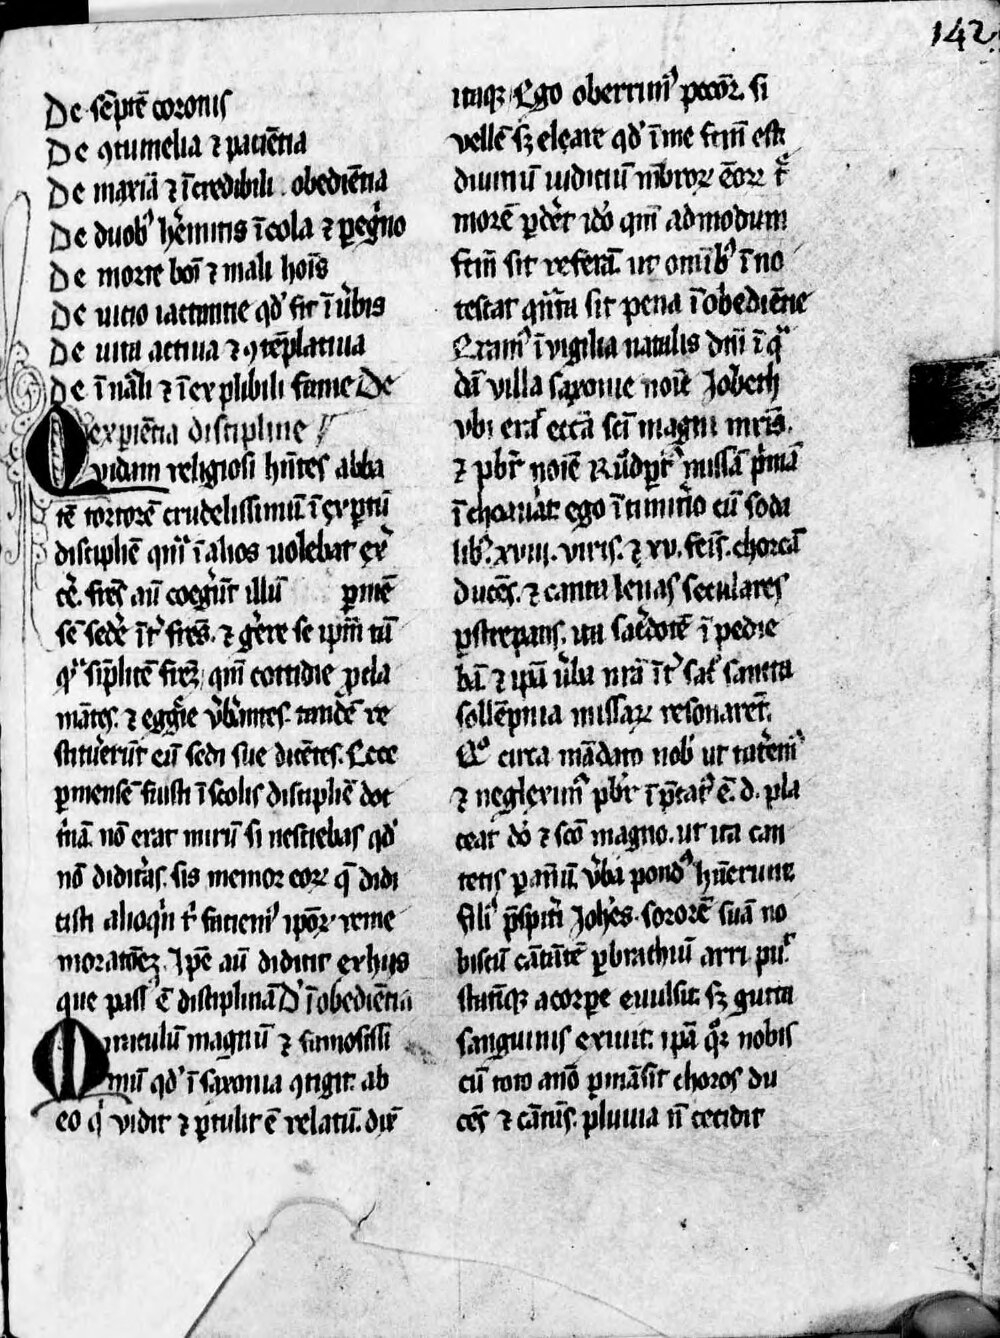 142
De septē coronis
De ꝯtumelia ⁊ paciētia
De maxīa ⁊ īcredibili obediētia
De duobꝰ hemitis īcola ⁊ pegͥno
De morte boī ⁊ mali hoīs
De uicio iactantie qd' fit ī ubis
De uita actiua ⁊ ꝯtēplatiua
De ī nāli ⁊ ī explibili fame De
expiētia discipline
Quidam religiosi hn̄tes abba
tē tortorē crudelissimū ī egyptū
discipliē ī alios uolebat ex
cē. fr̄es aū coegūt illū pmē
sē sede īt' fr̄es. ⁊ gere se ipm̄ tm̄
simplitē fr̄em cottidie pela
mātes. ⁊ eggie ūbantes. tandē re
stituerūt eū sedi sue dicētes. Ecce
pmensē fuisti ī scolis discipliē doc
t'nā. nō erat mirū si nesciebas qd'
nō didic'as. sis memor eoꝝ q̄ didi
cisti alioqͥn t' faciemꝰ ipōꝝ reme
moratōeȝ. Ipē aū didicit ex hijs
que pass' ē disciplinā D' īobediētia
Miraculū magnū ⁊ famosissi
mū qd' ī saxonia ꝯtigit. ab
eo qͥ vidit ⁊ ptulit ē relatū. dix̄
itaqꝫ Ego obertinꝰ peccōr. si
vellē sȝ elcare qd' ī me fctm̄ est
diuinū iudiciū mb̄roꝝ eoꝝ t'
morē pdēt ido qm̄ admodum
fctm̄ sit referā. ut omībꝰ īno
tescat qn̄ta sit pena īobediētie
Eramꝰ ī vigilia natalis dn̄i ī qͣ
dā villa saxonie noīe Iobeth
vbi erāt ecc̄a sc̄i magni mr̄is.
⁊ pb̄r noīe Rudpt' missā pͥmā
īchoauāt. ego ī timit'io cū soda
libꝰ. xviij. viris. ⁊ xv. feīs. choreā
ducēs. ⁊ cantilenas seculares
pstrepans. ita sacdotē īpedie
bā ⁊ ipā ūba nr̄a īt' sac' sancta
sollēpnia missaꝝ resonarēt.
Qº circa mādato nob' ut taremꝰ
⁊ neglexīmꝰ pb̄r īpcat' ē. d. pla
ceat dō ⁊ sc̄o magno. ut ita can
tetis p annū. ūba pondꝰ hūerunt
filiꝰ pspit'i Joh'es sororē suā no
biscū cātātē p brachiū arripuit
statīqꝫ a corpe euulsit. sȝ gutta
sanguinis exiuit. ipā qͦꝫ nobis
cū toto anō pmāsit choros du
cēs ⁊ cātās. pluuia n̄ cecidit